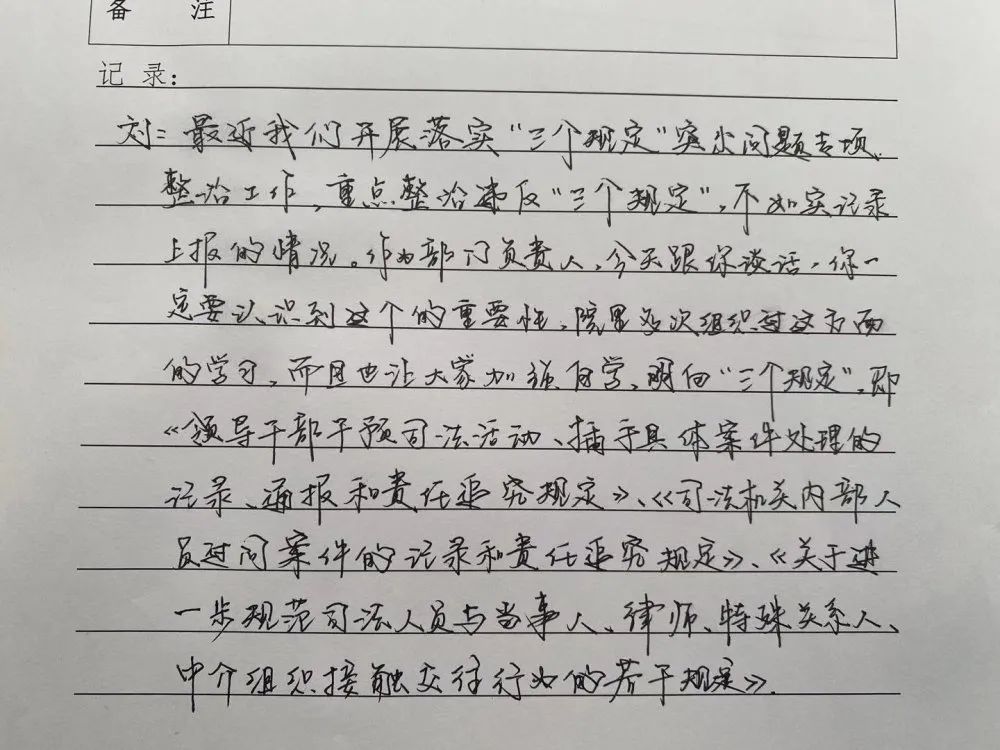 备 注
记 录:
刘:最近我们开展落实“三个规定”突出问题专项
整治工作,重点整治违反“三个规定”,不如实记录
上报的情况。作为部门负责人,今天跟你谈话,你一
定要认识到这个的重要性,院里多次组织过这方面
的学习,而且也让大家加强自学,明白“三个规定”,即
《领导干部干预司法活动、插手具体案件处理的
记录、通报和责任追究规定》、《司法机关内部人
员过问案件的记录和责任追究规定》、《关于进
一步规范司法人员与当事人、律师、特殊关系人、
中介组织接触交往行为的若干规定》。